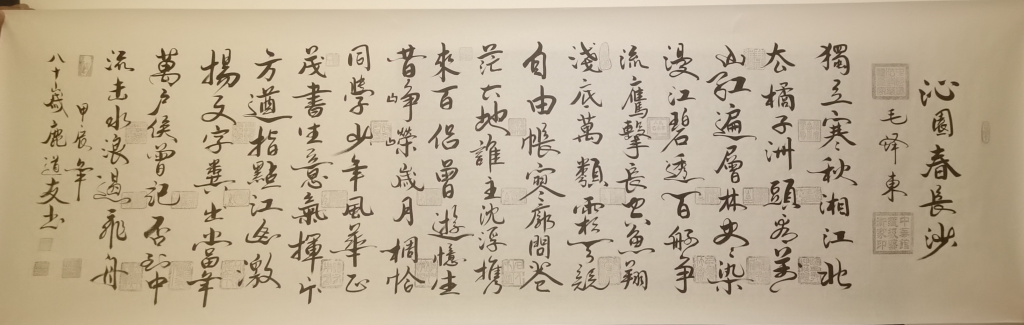 沁園春長沙
毛澤東
獨立寒秋湘江北
去橘子洲頭看萬
山紅遍層林盡染
漫江碧透百舸爭
流鷹擊長空魚翔
淺底萬類霜天競
自由悵寥廓問蒼
茫大地誰主沈浮攜
來百侶曾遊憶往
昔崢嶸歲月稠恰
同學少年風華正
茂書生意氣揮斥
方遒指點江山激
揚文字糞土當年
萬戶侯曾記否到中
流击水浪遏飛舟
甲辰年
八十歲鹿道友书